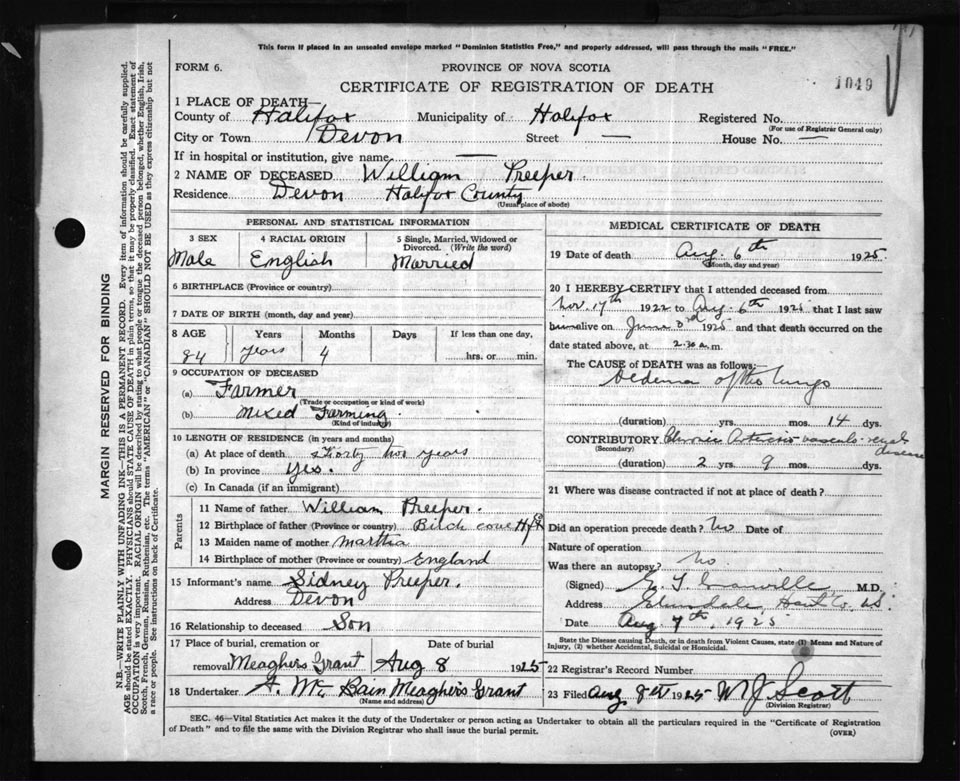 This form if placed in an unsealed envelope marked "Dominion Statistics Free," and properly addressed, will pass through the mails "FREE."
FORM 6.
PROVINCE OF NOVA SCOTIA
CERTIFICATE OF REGISTRATION OF DEATH
1049
1 PLACE OF DEATH—
County of Halifax Municipality of Halifax Registered No.
(For use of Registrar General only)
City or Town Devon Street — House No. —
If in hospital or institution, give name —
2 NAME OF DECEASED William Preeper.
Residence Devon Halifax County
(Usual place of abode)
PERSONAL AND STATISTICAL INFORMATION
3 SEX
Male
4 RACIAL ORIGIN
English
5 Single, Married, Widowed or Divorced. (Write the word)
Married
6 BIRTHPLACE (Province or country)
7 DATE OF BIRTH (month, day and year)
8 AGE Years Months Days If less than one day,
84 years 4 hrs. or min.
9 OCCUPATION OF DECEASED
(a) Farmer
(Trade or occupation or kind of work)
(b) Mixed Farming.
(Kind of industry)
10 LENGTH OF RESIDENCE (in years and months)
(a) At place of death two years
(b) In province Yes.
(c) In Canada (if an immigrant)
Parents
11 Name of father William Preeper.
12 Birthplace of father (Province or country) Birch cove Hfx
13 Maiden name of mother Martha
14 Birthplace of mother (Province or country) England
15 Informant's name Sidney Preeper.
Address Devon
16 Relationship to deceased Son
17 Place of burial, cremation or removal Meaghers Grant
Date of burial
Aug 8 1925
18 Undertaker A. Mc Bain Meaghers Grant
(Name and address)
MEDICAL CERTIFICATE OF DEATH
19 Date of death Aug. 6th 1925
(Month, day and year)
20 I HEREBY CERTIFY that I attended deceased from
Nov. 17th 1922 to Aug. 6th 1925 that I last saw
him alive on June 3rd 1925 and that death occurred on the
date stated above, at 2.30 a.m.
The CAUSE OF DEATH was as follows:
Oedema of the lungs
(duration) yrs. mos. 14 dys.
CONTRIBUTORY Chronic Arterio-vasculo-renal disease
(Secondary)
(duration) 2 yrs. 9 mos. dys.
21 Where was disease contracted if not at place of death?
Did an operation precede death? No Date of
Nature of operation
Was there an autopsy? No.
(Signed) M.D.
Address Elmsdale, Hants Co. N.S.
Date Aug. 7th, 1925
State the Disease causing Death, or in death from Violent Causes, state (1) Means and Nature of Injury, (2) whether Accidental, Suicidal or Homicidal.
22 Registrar's Record Number
23 Filed Aug 8th 1925 W J Scott
(Division Registrar)
SEC. 46—Vital Statistics Act makes it the duty of the Undertaker or person acting as Undertaker to obtain all the particulars required in the "Certificate of Registration
of Death" and to file the same with the Division Registrar who shall issue the burial permit.
(OVER)
MARGIN RESERVED FOR BINDING
N.B.—WRITE PLAINLY WITH UNFADING INK—THIS IS A PERMANENT RECORD. Every item of information should be carefully supplied.
AGE should be stated EXACTLY. PHYSICIANS should STATE CAUSE OF DEATH in plain terms, so that it may be properly classified. Exact statement of
OCCUPATION is very important. RACIAL ORIGIN will be described by stating to what people or tongue the deceased person belonged, whether English, Irish,
Scotch, French, German, Russian, Ruthenian, etc. The terms "AMERICAN" or "CANADIAN" SHOULD NOT BE USED as they express citizenship but not
a race or people. See instructions on back of Certificate.